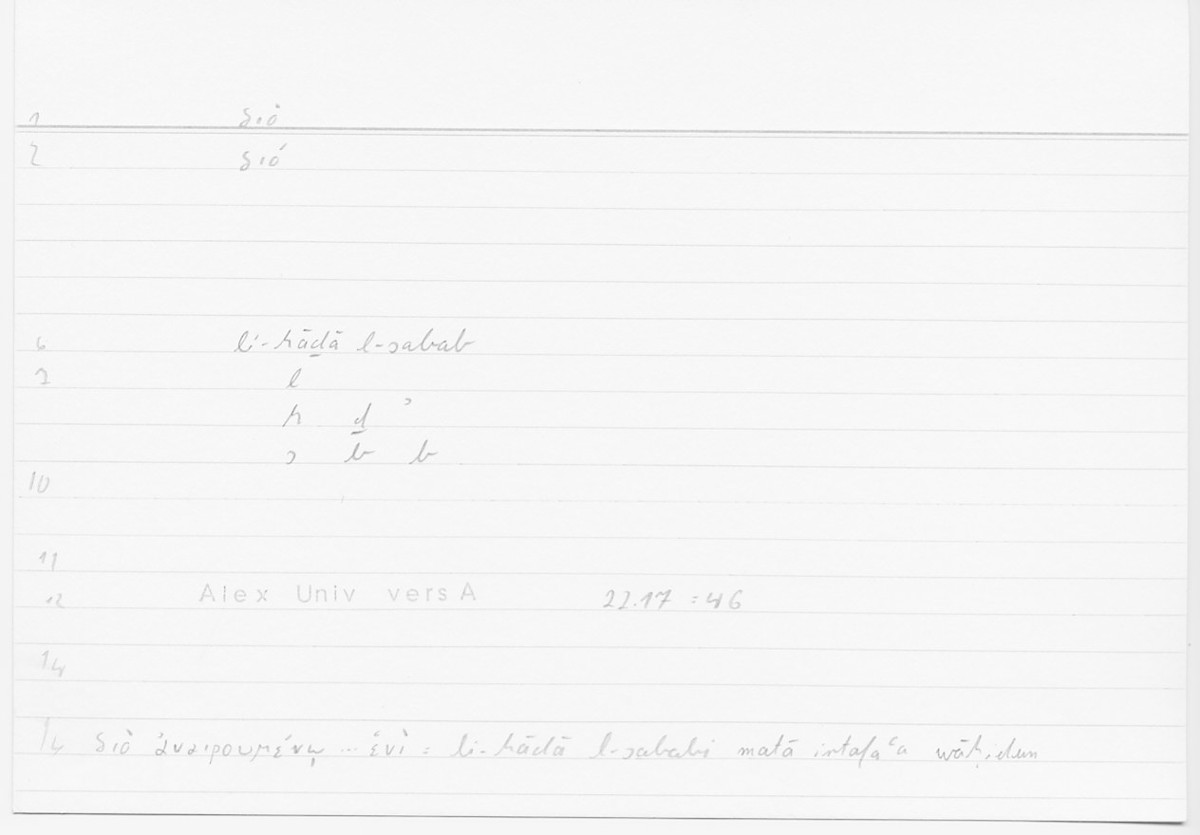 1 διὸ
2 διό
6 li-hāḏā l-sabab
7 l
h ḏ ʾ
s b b
10
11
12 Alex Univ vers A 22.17 = 46
14
14 διὸ ἀναιρουμένῳ ... ἑνὶ = li-hāḏā l-sababi matā irtafaʿa wāḥidun